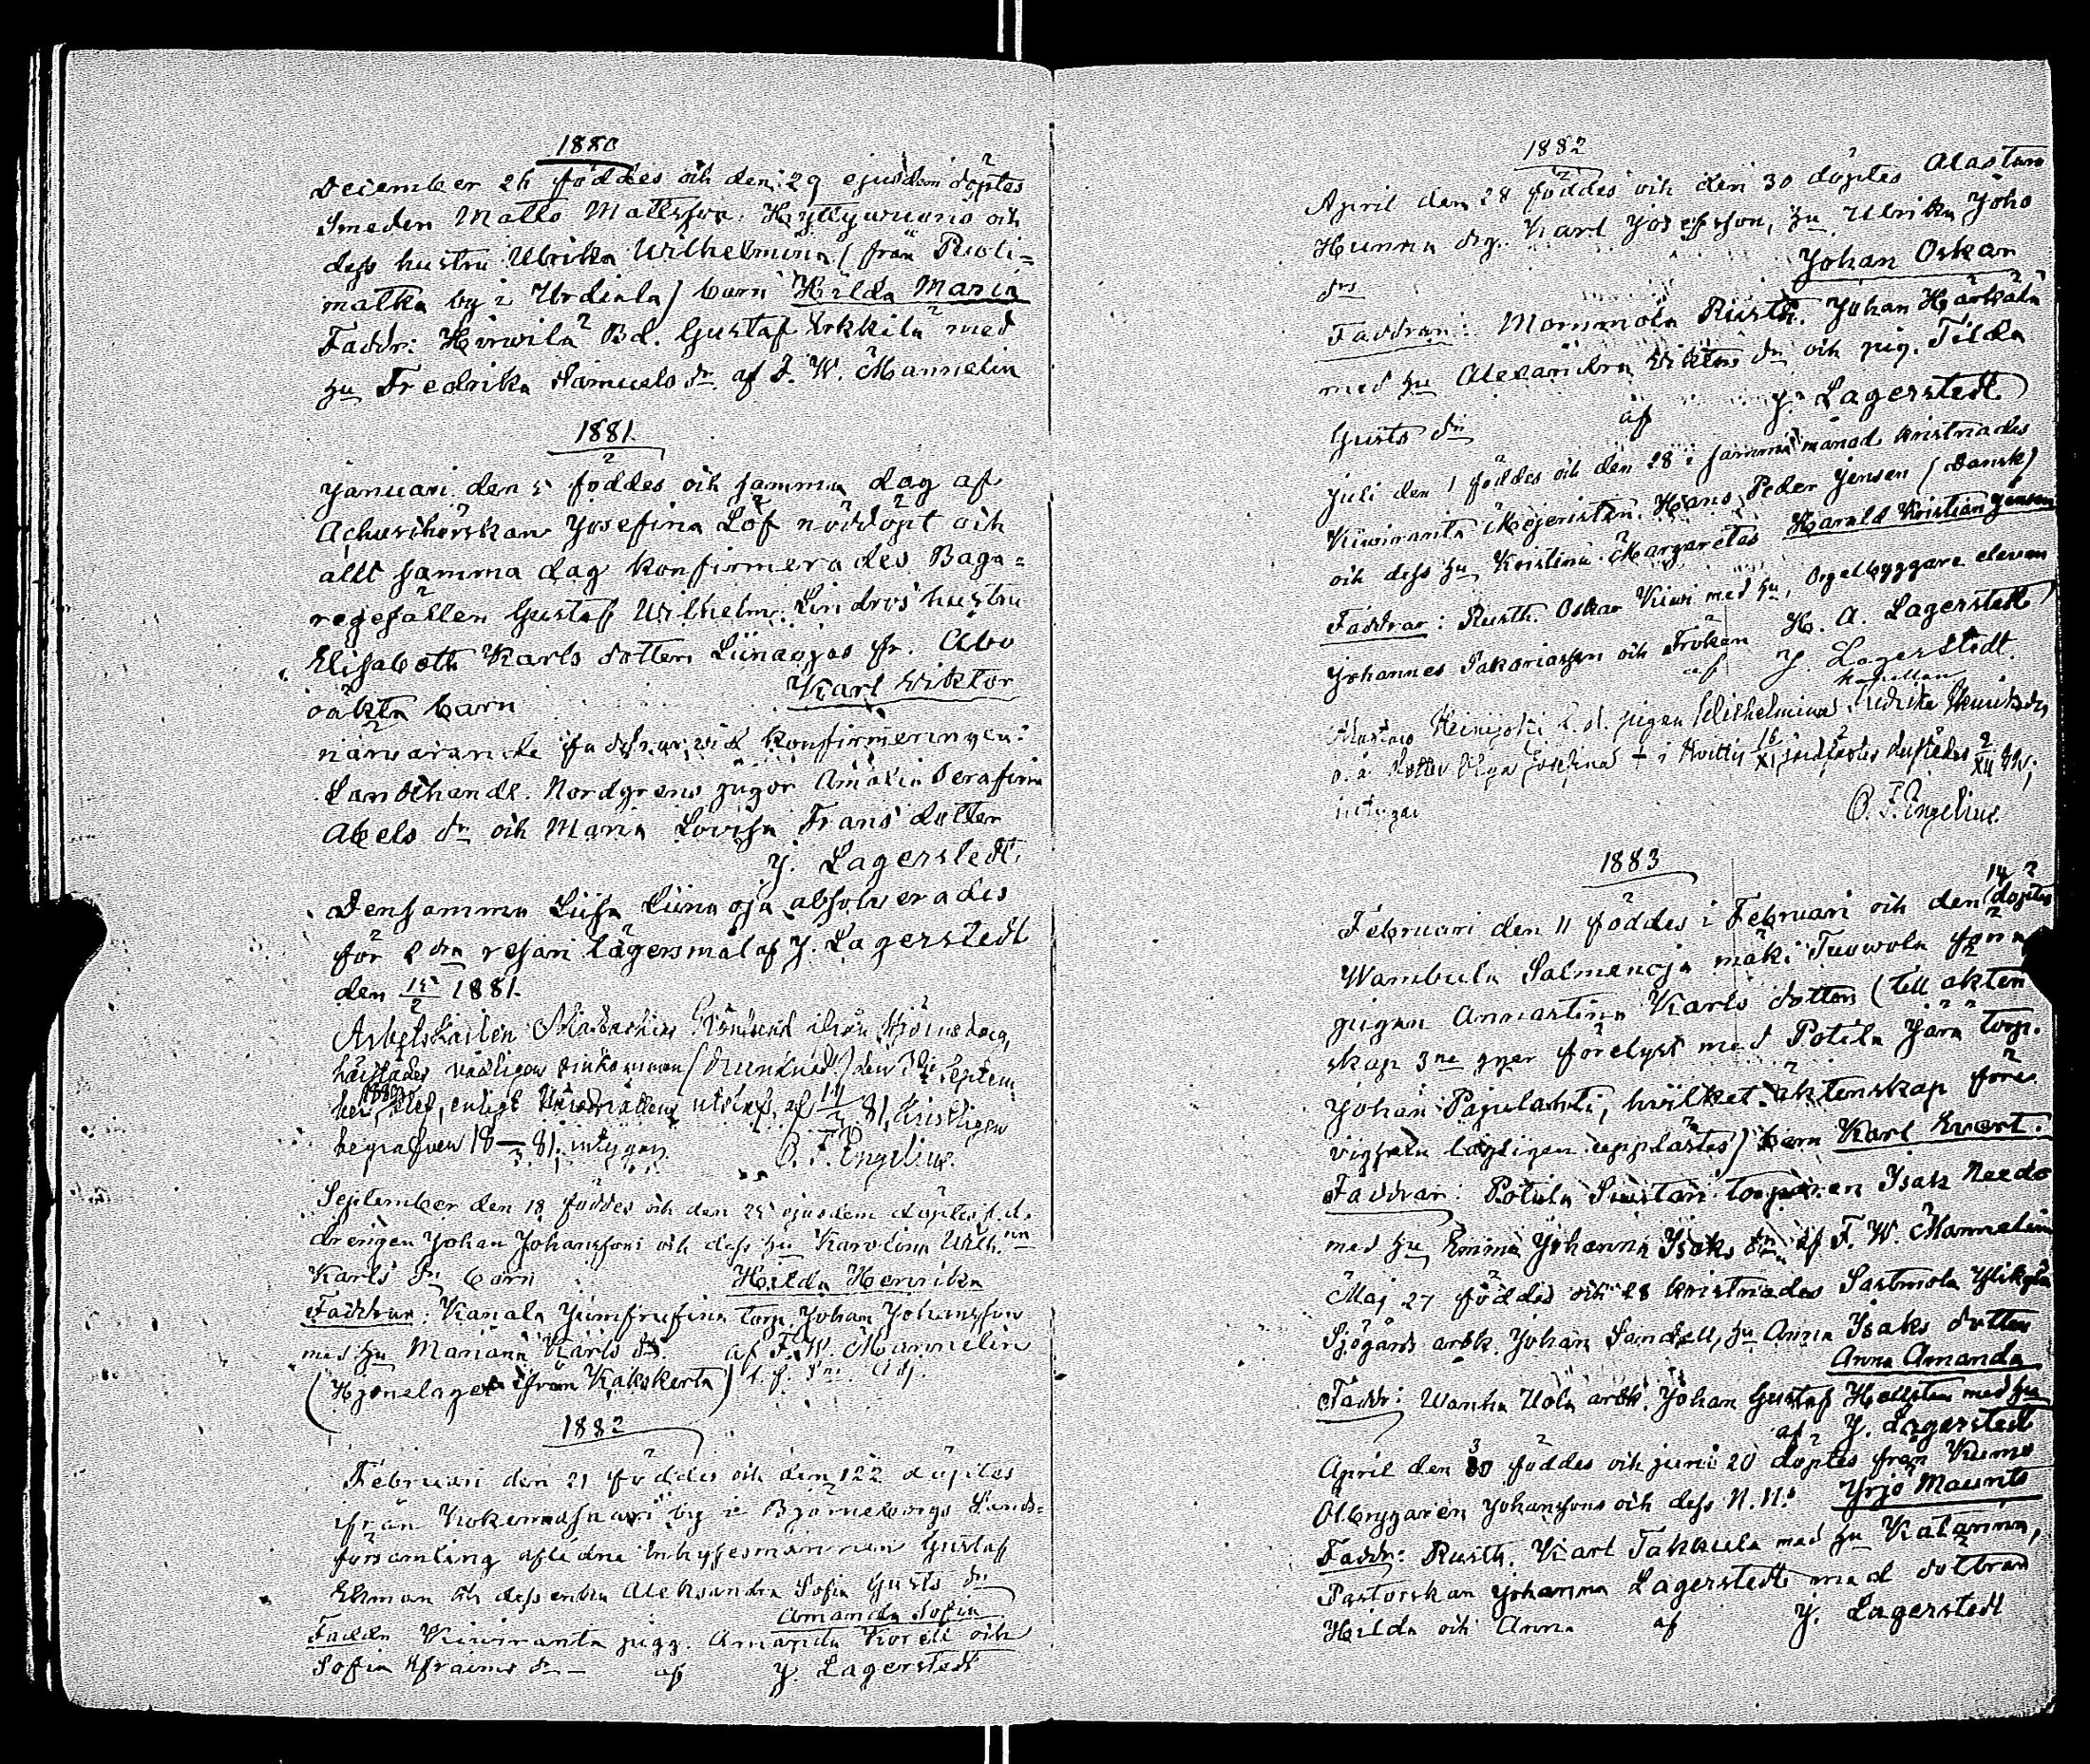 1880
December 24 föddes och den 29 ejusdem döptes
Smeden Matts Mattsson och
dess hustru Ulrika Wilhelmina (från Ruoti=
matka by i Urdiala) barn Hilda Maria
Faddr: Hirwilä Bd. Gustaf Erkkilä med
hu Fredrika Samuels dr. af F. W. Mannelin
1881.
Januari den 5 föddes och samma dag af
Achuschörskan Josefina Löf nöddöpt och
allt samma dag konfirmerades Baga=
regesällen Gustaf Wilhelm Lindros hustru
Elisabeth Karls dotters Liinaojas fr. Åbo
oäkta barn Karl Wiktor
närwarande faddrar wid konfirmeringen:
Landthandl. Nordgrens pigor Amalia Serafina
Abels dr och Maria Lovisa Frans dotter
J. Lagerstedt.
Densamma Liisa Liinaoja absolverades
för 2 dra resan lägersmål af J. Lagerstedt
den 15/2 1881.
Arbetskarlen ifrån Björneborg,
hädan (drunknad) den Septem
ber enligt utslag af 81, kristligen
begrafven 18 81, intygar O. F. Engelius.
September den 18 föddes och den 25 ejusdem döptes f.d.
drengen Johan Johanssons och dess hu Karolina Wilh.na
Karls dr barn Hilda Henrika
Faddrar: Kanala torp. Johan Johansson
med hu Mariana Karls dr. af F. W. Mannelin
(Hjonelaget ifrån Kakskerta)
1882
Februari den 21 föddes och den 22 döptes
ifrån Kokemäsaari by i Björneborgs Lands=
församling aflidne Inhysesmannen Gustaf
Ekman och dess enka Aleksandra Sofia Gusts dr
Amanda Sofia
Faddr Kiwiranta pigg. Amanda och
Sofia Efraims dr af J. Lagerstedt
1882
April den 28 föddes och den 30 döptes Alastaro
Hunna drg. Karl Josefsson, hu Ulrika Joho
drs Johan Oskar
Faddrar: Mommola Rusth. Johan Härkälä
med hu Alexandra Wiktors dr och pig. Tilda
Gusts dr af J. Lagerstedt
Juli den 1 föddes och den 28 i samma månad kristnades
Kiwiranta Mejeristen Hans Peder Jensen (Dansk)
och dess hu Kristina Margaretas Harald Kristian Jensen
Faddrar: Rusth. Oskar Kiwi med hu, Orgelbyggare eleven
Johannes Sakariassen och Fröken H. A. Lagerstedt
af J. Lagerstedt.
Kapellan
pigan Wilhelmina Fredrika
o. ä. dotter Olga Josefina † i Kvittis 16/XI jordfästes 2/XII 82,
intygar O. F. Engelius.
1883
Februari den 11 föddes i Februari och den 14 döptes
Wambula Salmenoja mäki Tuowola
pigan Annastina Karls dotters (till äkten
skap 3ne gger förelyst med Potila Jära torp.
Johan Pajulahti, hvilket äktenskap före
vigseln lagligen upplästes) barn Karl Evert.
Faddrar: Potila Suistari torparen Isak Needo
med hu Emma Johanna Isaks dr. af F. W. Mannelin
Maj 27 föddes och 28 kristnades Sastmola Ylikylä
Sjögårds arbk. Johan Sandell, hu Anna Isaks dotter
Anna Amanda
Faddr: Wanha Uola arbk. Johan Gustaf Hellsten med hu
af J. Lagerstedt
April den 30 föddes och juni 20 döptes från Kumo
Ölbryggaren Johanssons och dess N. N.s Yrjö Maunts
Faddr: Rusth. Karl Takkula med hu Katarina,
Pastorskan Johanna Lagerstedt med döttrar
Hilda och Anna af J. Lagerstedt